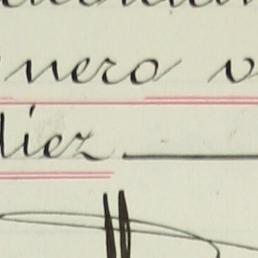 nero v
diez